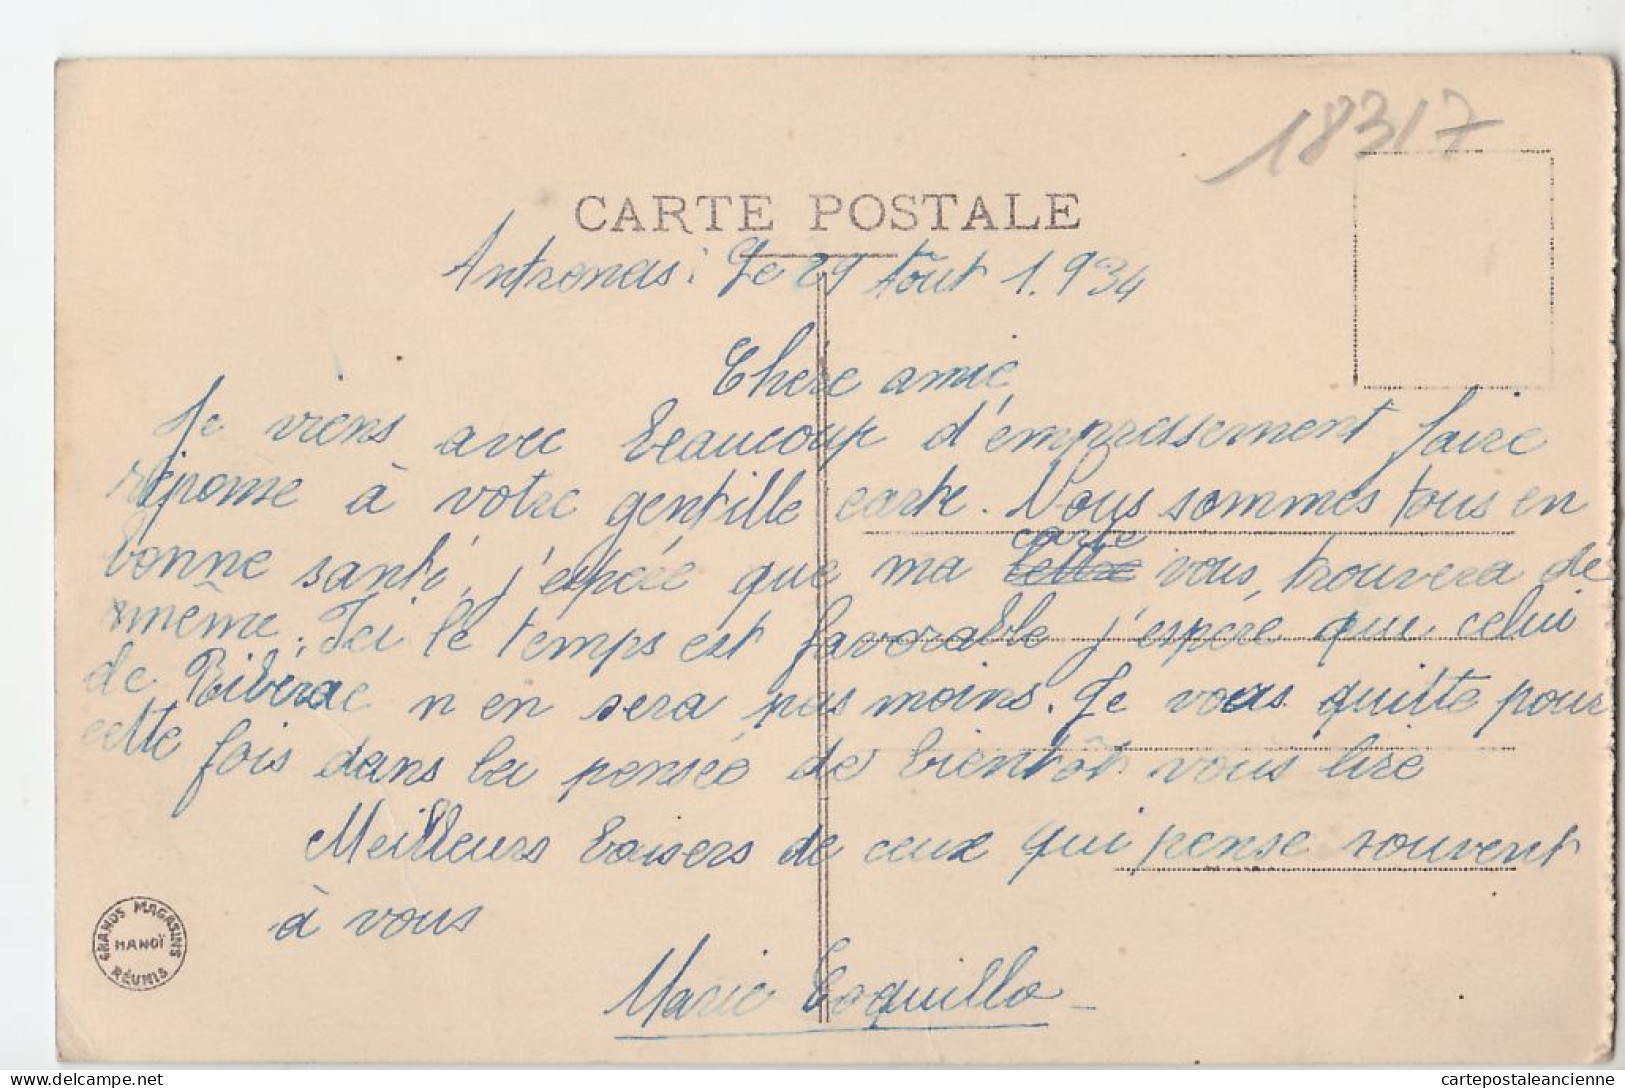 18317
CARTE POSTALE
Le 29 Août 1.934
Chére amie
Je viens avec beaucoup d'empressement faire
réponse à votre gentille carte. Nous sommes tous en
bonne santé, j'espére que ma carte vous, trouvera de
même. Ici le temps est favorable j'espére que celui
de Ribérac n en sera pas moins. Je vous quitte pour
cette fois dans la pensée de bientôt vous lire
Meilleurs baisers de ceux qui pense souvent
à vous
Marie
GRANDS MAGASINS
HANOÏ
RÉUNIS
delcampe.net
cartepostaleancienne